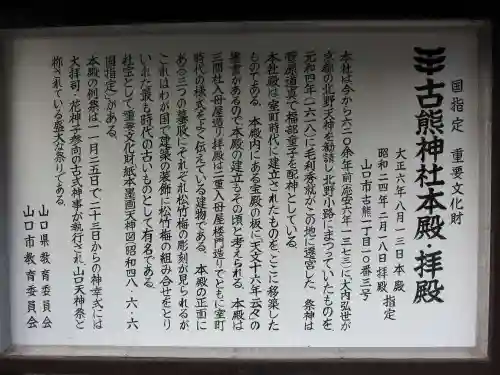 国指定 重要文化財
古熊神社本殿・拝殿
大正六年八月一三日本殿
昭和二四年二月一八日拝殿 指定
山口市古熊一丁目一〇番三号
本社は今から六二〇余年前(応安六年一三七三)に大内弘世が
京都の北野天神を勧請し北野小路にまつっていたものを
元和四年(一六一八)に毛利秀就がこの地に遷宮した。祭神は
菅原道真で福部童子を配神としている。
本社殿は室町時代に建立されたものをここに移築した
ものである。本殿内にある宝殿の板に天文十六年云々の
墨書があるので本殿の建立もその頃と考えられる。本殿は
三間社入母屋造り拝殿は一重入母屋楼門造りでともに室町
時代の様式をよく伝えている建物である。本殿の正面に
ある三つの蟇股にそれぞれ松竹梅の彫刻が見られるが
これはわが国で建築の装飾に松竹梅の組み合せをとり
いれた最も時代の古いものとして有名である。
社宝として重要文化財紙本墨画天神図(昭和四八・六・六
国指定)がある。
本殿の例祭は一一月二五日で二十三日からの神幸式には
大拝司、花神子参向の古式神事が執行され山口天神祭と
称されている盛大な祭りである。
山口県教育委員会
山口市教育委員会